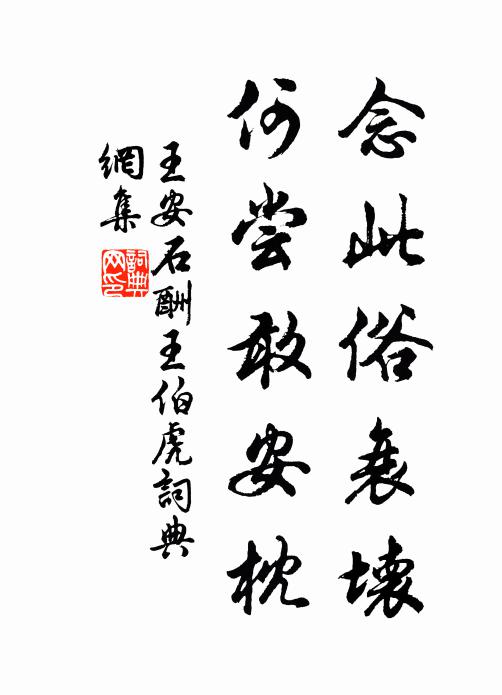 念此俗衰壞
何嘗敢安枕
王安石酬王伯虎詞典
網集
詞典
网印